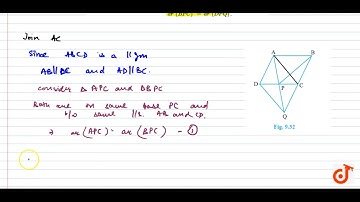 ar (BPC) = ar (DPQ).
Join AC
Since ABCD is a ||gm
AB||DC and AD||BC.
consider Δ APC and ΔBPC
Both are on same base PC and
b/w same ||s. AB and CD.
⇒ ar (APC) = ar (BPC) - ①
A
B
D
P
C
Q
Fig. 9.32
doubtnut